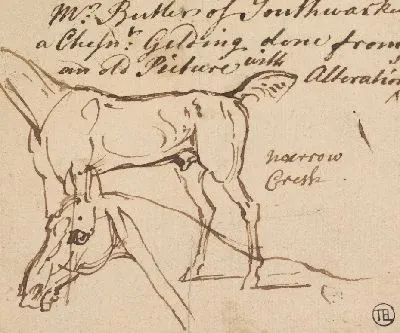 Mr. Butler of Southwark
a Chesnt. Gelding done from
an old Picture with Alteration
narrow
Cresk
TEL